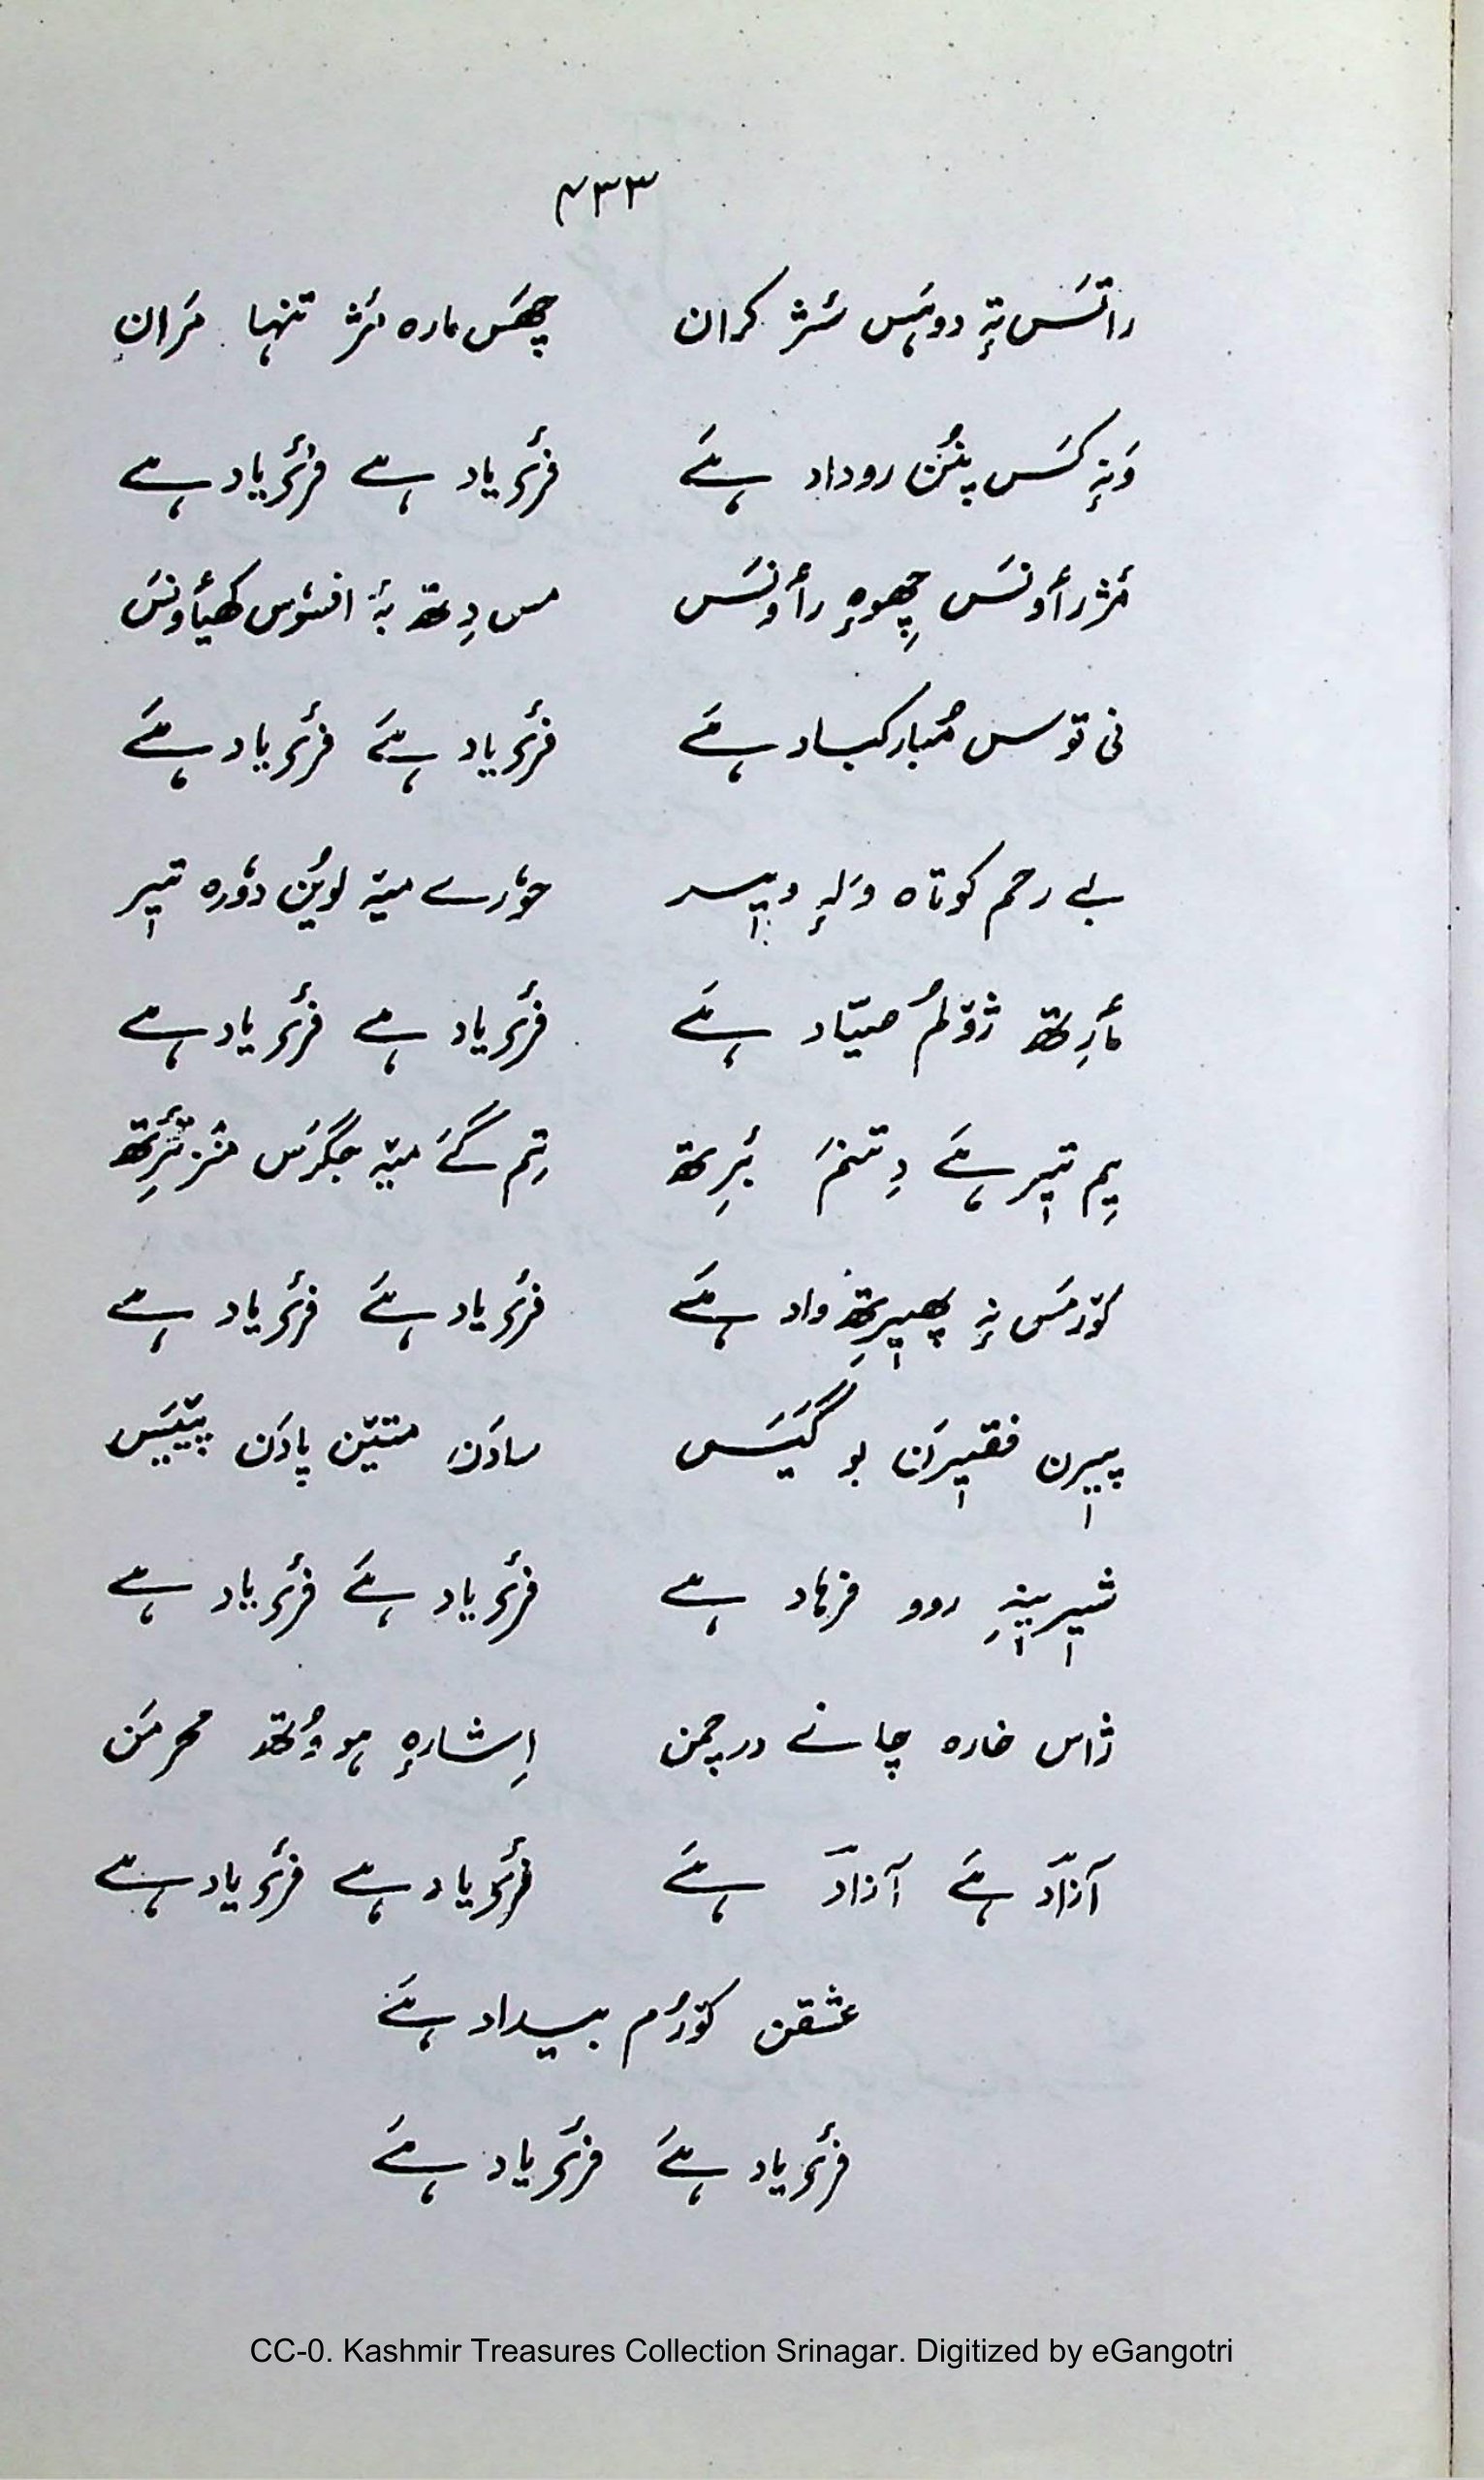 ۴۳۳
راتَس تہٕ دوہَس سٔرٛ کران چھَس مارہ مٔژ تنہا مَران
وَنہٕ کَس پنُن روداد ہےَ فرٔی یاد ہے فرٔی یاد ہے
مٔژ رأونَس چھِوہٕ رأونَس مس دِتھ بہٕ افسوس کھیأونَس
نی توس مُبارکباد ہےَ فرٔی یاد ہےَ فرٔی یاد ہےَ
بے رحم کوتاہ ولہٕ ویسر حوٗرے میہٕ لوین دوٗرہ تیر
مٲرِتھ ژوٚلُم صیّاد ہےَ فرٔی یاد ہے فرٔی یاد ہے
یِم تیر ہےَ دِتنمَ بٔرِتھ تِم گےَ میہٕ جگرَس منٛز ترٔتھ
کوٚرمَس نہٕ پھیرِتھ واد ہےَ فرٔی یاد ہےَ فرٔی یاد ہے
پیرن فقیرَن بو گیَس سادَن متیٚن پادَن پیٚیَس
شیرینہِ روو فرہاد ہے فرٔی یاد ہےَ فرٔی یاد ہے
ژاس خارہ چانے در چمن اِشارہٕ ہووُتھ محرمَن
آزادَ ہےَ آزادَ ہےَ فرٔی یاد ہے فرٔی یاد ہے
عشقن کوٚرُم بیداد ہےَ
فرٔی یاد ہےَ فرٔی یاد ہےَ
CC-0. Kashmir Treasures Collection Srinagar. Digitized by eGangotri